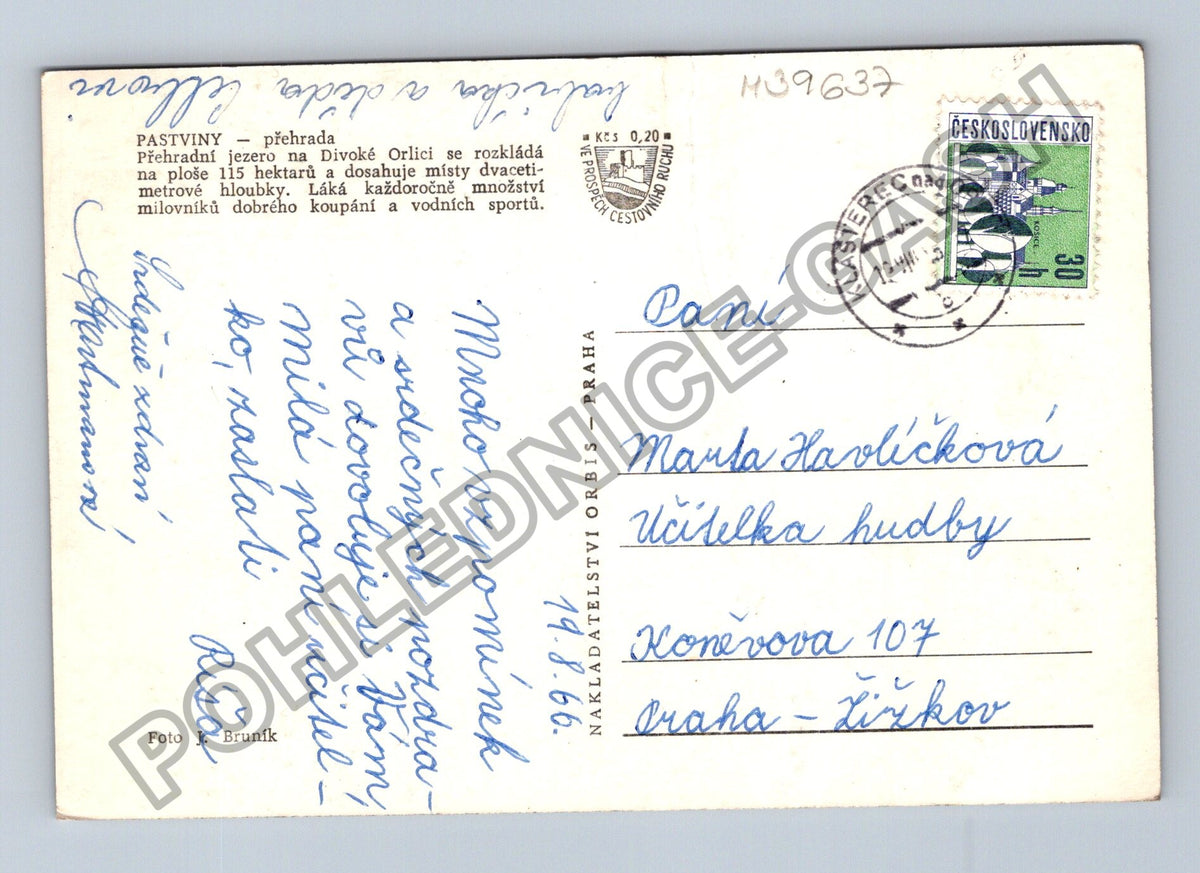 babička a děda
M39637
PASTVINY — přehrada
Přehradní jezero na Divoké Orlici se rozkládá
na ploše 115 hektarů a dosahuje místy dvaceti-
metrové hloubky. Láká každoročně množství
milovníků dobrého koupání a vodních sportů.
Kčs 0,20
VE PROSPĚCH CESTOVNÍHO RUCHU
ČESKOSLOVENSKO
30
h
KLÁŠTEREC nad
19.8.66.
Mnoho vzpomínek
a srdečných pozdra-
vů dovoluje si Vám,
milá paní učitel-
ko, zaslati
Růža
Srdečně zdraví
Hartmanová
Foto J. Bruník
NAKLADATELSTVÍ ORBIS — PRAHA
Paní
Marta Havlíčková
Učitelka hudby
Koněvova 107
Praha - Žižkov
POHLEDNICE-CASH